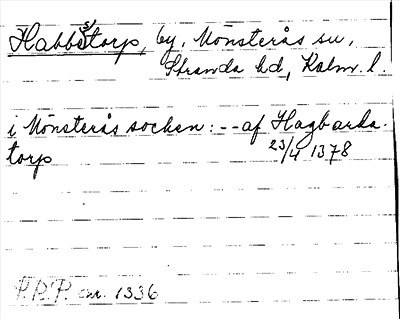 Habbestorp, by, Mönsterås sn,
Stranda hd, Kalm. l.
i Mönsterås socken: -- af Hagbarka-
torp 23/4 1378
P.R.P. nr. 1336